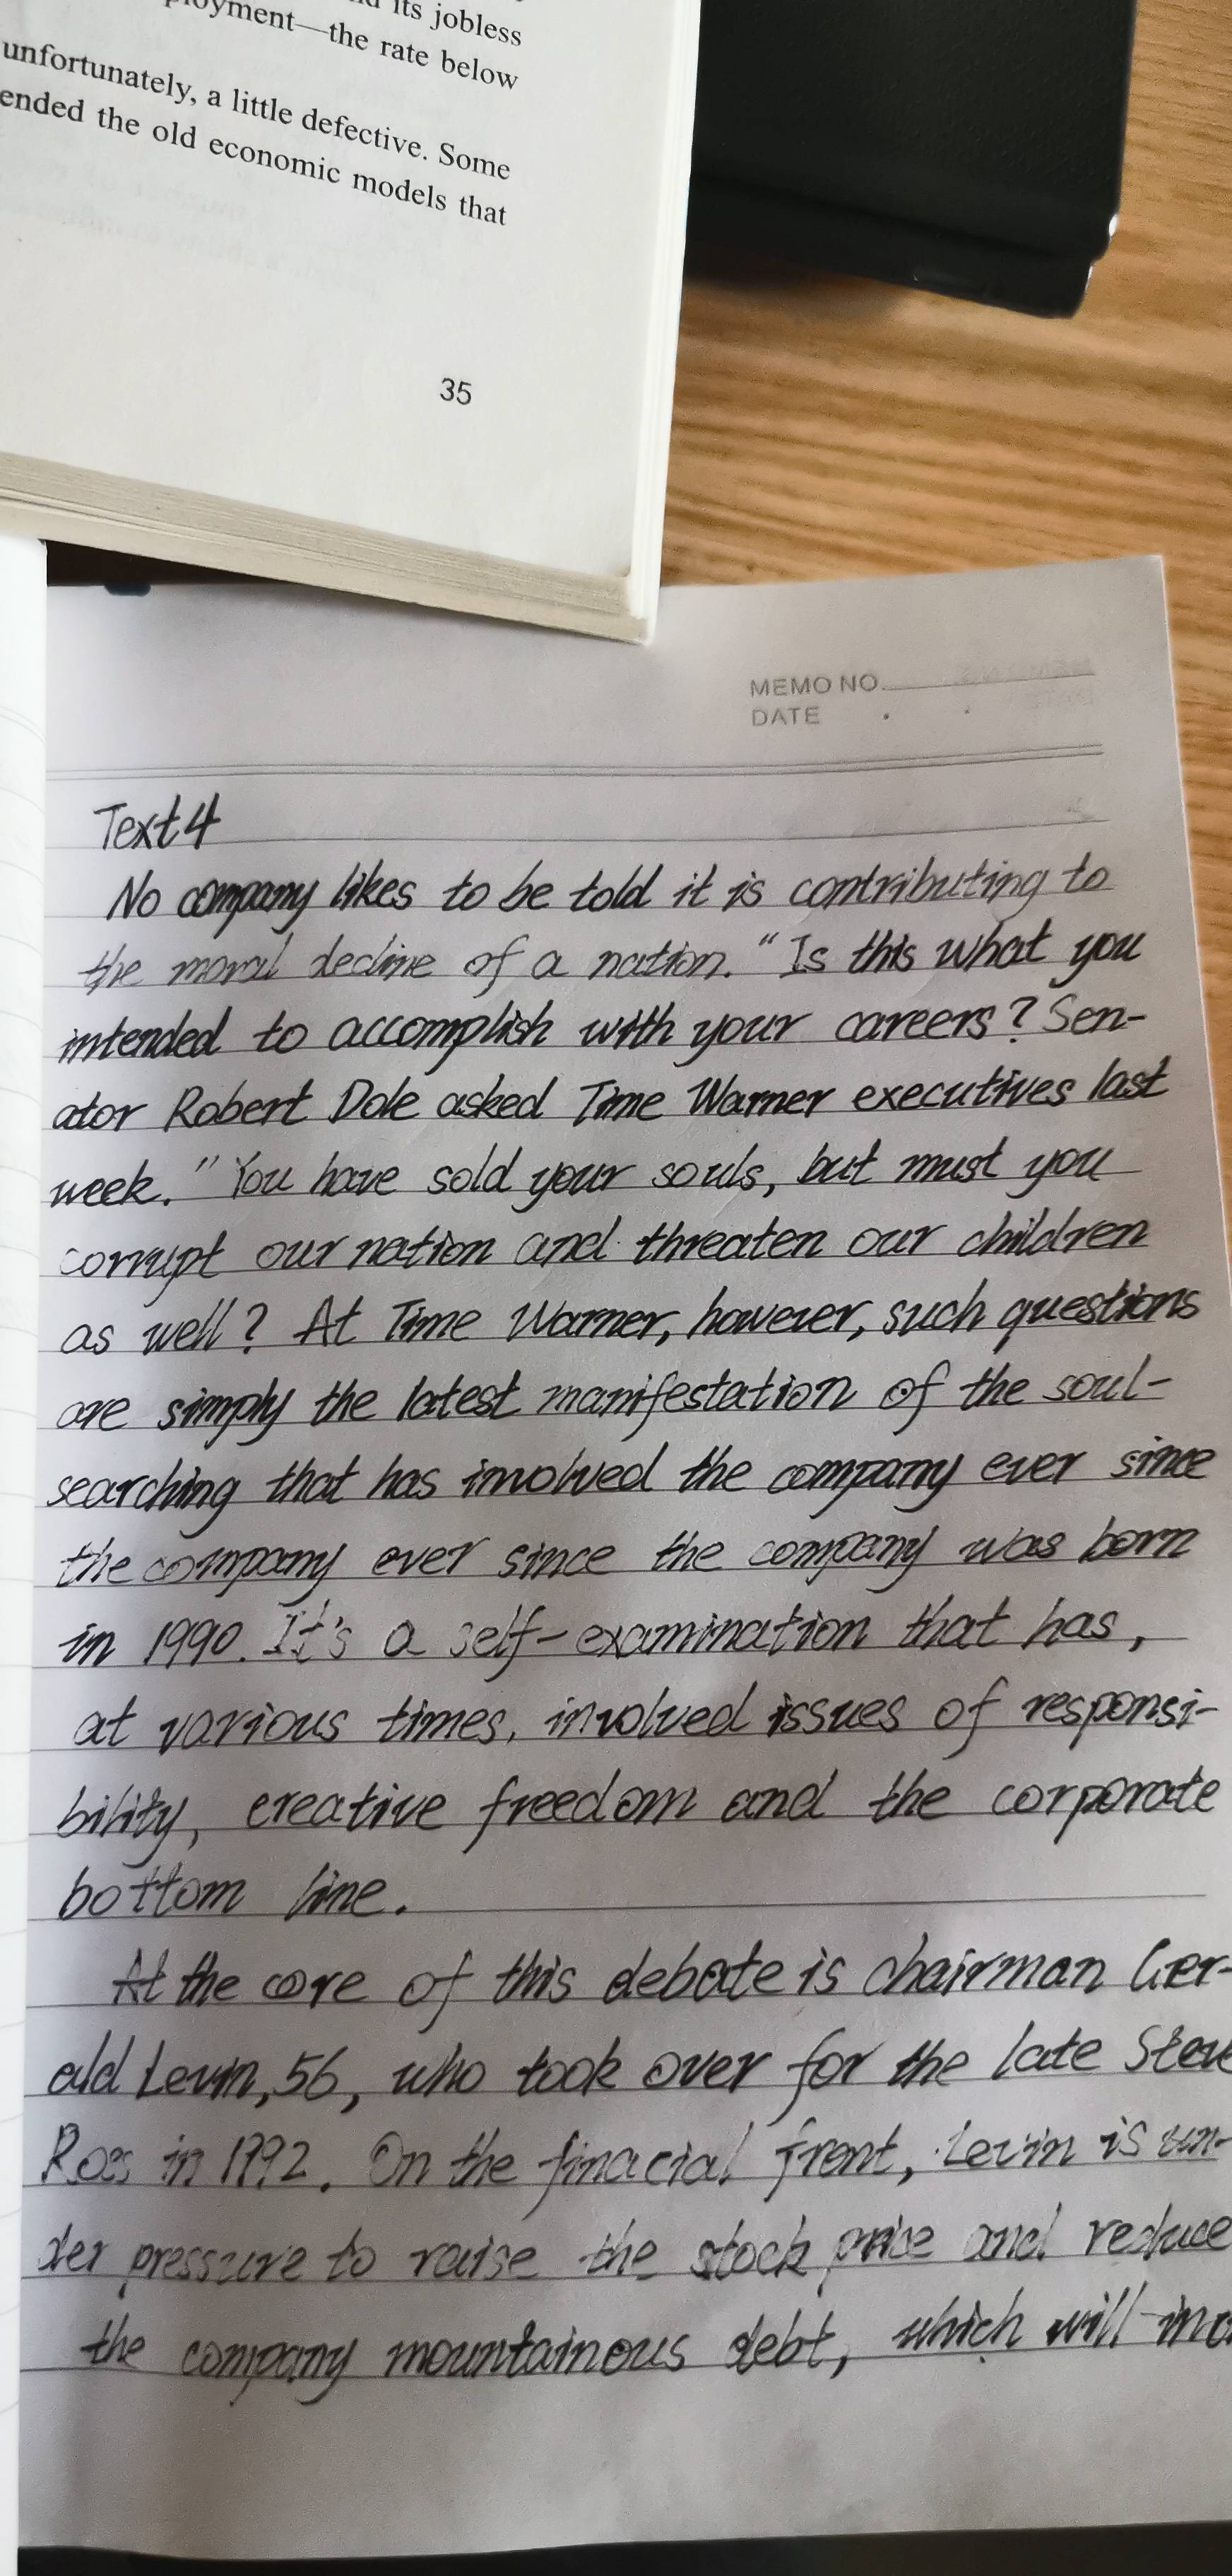 its jobless
ployment—the rate below
unfortunately, a little defective. Some
ended the old economic models that
35
MEMO NO.
DATE . .
Text 4
No company likes to be told it is contributing to
the moral decline of a nation. "Is this what you
intended to accomplish with your careers? Sen-
ator Robert Dole asked Time Warner executives last
week. "You have sold your souls, but must you
corrupt our nation and threaten our children
as well? At Time Warner, however, such questions
are simply the latest manifestation of the soul-
searching that has involved the company ever since
the company ever since the company was born
in 1990. It's a self-examination that has,
at various times, involved issues of responsi-
bility, creative freedom and the corporate
bottom line.
At the core of this debate is chairman Ger-
ald Levin, 56, who took over for the late Steve
Ross in 1992. On the finacial front, Levin is un-
der pressure to raise the stock price and reduce
the company mountainous debt, which will